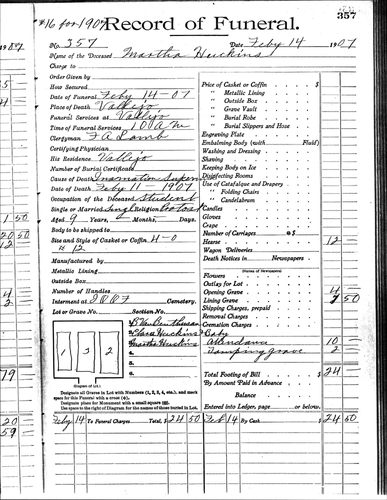 #16 for 1907
357
Record of Funeral.
No. 357 Date Feby 14 1907
Name of the Deceased Martha Huckins
Charge to
Order Given by
Hour Secured
Date of Funeral Feby 14-07
Place of Death Vallejo
Funeral Services at Vallejo
Time of Funeral Services 10 A M
Clergyman F A Lamb
Certifying Physician
His Residence Vallejo
Number of Burial Certificate
Cause of Death
Date of Death Feby 11-1907
Occupation of the Deceased Student
Single or Married Single Religion
Aged 9 Years, Months, Days.
Body to be shipped to
Size and Style of Casket or Coffin 4-0
x 12
Manufactured by
Metallic Lining
Outside Box
Number of Handles
Interment at Cemetery.
Lot or Grave No. Section No.
1 3 2
1.
2. Clara Huckins
3. Martha Huckins
4.
5.
6.
Diagram of Lot.
Designate all Graves in Lot with Numbers (1, 2, 3, 4, etc.), and mark
space for this Funeral with a cross (+).
Designate place for Monument with a small square (□).
Use space to the right of Diagram for the names of those buried in Lot.
Feby 14 To Funeral Charges Total, $ 24 50
Price of Casket or Coffin $
" Metallic Lining
" Outside Box
" Grave Vault
" Burial Robe
" Burial Slippers and Hose
Engraving Plate
Embalming Body (with Fluid)
Washing and Dressing
Shaving
Keeping Body on Ice
Disinfecting Rooms
Use of Catafalque and Drapery
" Folding Chairs
" Candelabrum
Candles
Gloves
Crape
Number of Carriages @ $
Hearse 12
Delivering
Death Notices in Newspapers
(Names of Newspapers)
Flowers
Outlay for Lot
Opening Grave 4
Lining Grave 50
Shipping Charges, prepaid
Removal Charges
Cremation Charges
Baby
Attendance 10
Tamping grave 2
Total Footing of Bill $ 24
By Amount Paid in Advance
Balance
Entered into Ledger, page or below.
Feb 14 By Cash $ 24 50